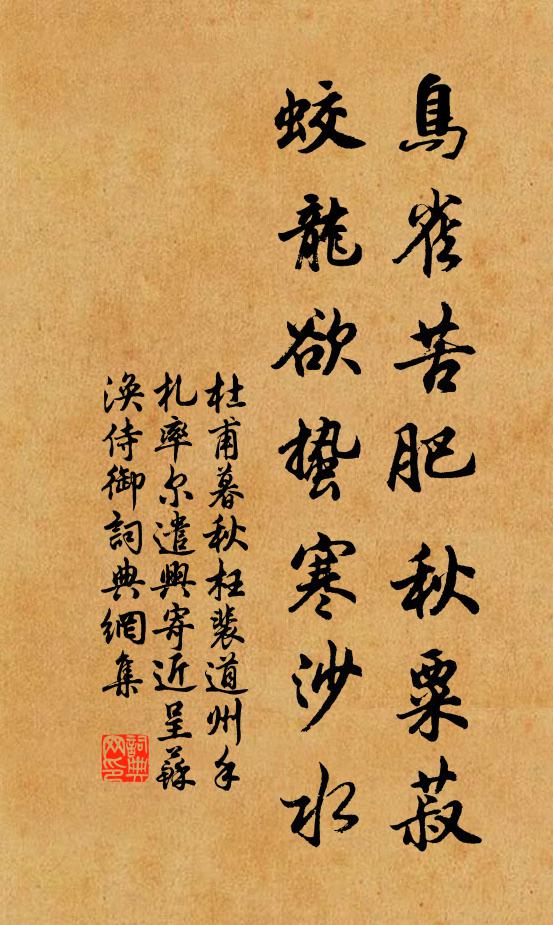 鳥雀苦肥秋粟菽
蛟龍欲蟄寒沙水
杜甫暮秋枉裴道州手
札率尔遣興寄近呈蘇
渙侍御詞典網集
詞典
网印